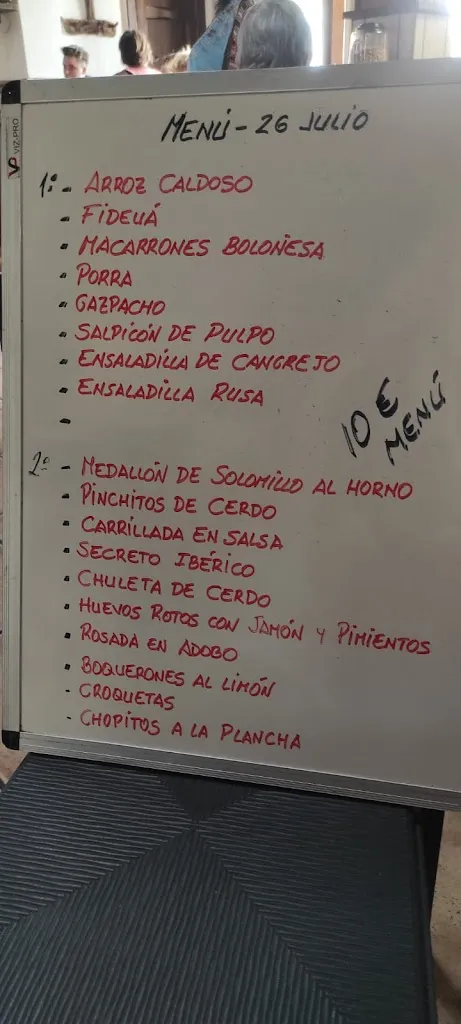 VIZ-PRO
MENÚ - 26 JULIO
1º - ARROZ CALDOSO
- FIDEUÁ
- MACARRONES BOLOÑESA
- PORRA
- GAZPACHO
- SALPICÓN DE PULPO
- ENSALADILLA DE CANGREJO
- ENSALADILLA RUSA
-
10 € MENÚ
2º - MEDALLÓN DE SOLOMILLO AL HORNO
- PINCHITOS DE CERDO
- CARRILLADA EN SALSA
- SECRETO IBÉRICO
- CHULETA DE CERDO
- HUEVOS ROTOS CON JAMÓN Y PIMIENTOS
- ROSADA EN ADOBO
- BOQUERONES AL LIMÓN
- CROQUETAS
- CHOPITOS A LA PLANCHA